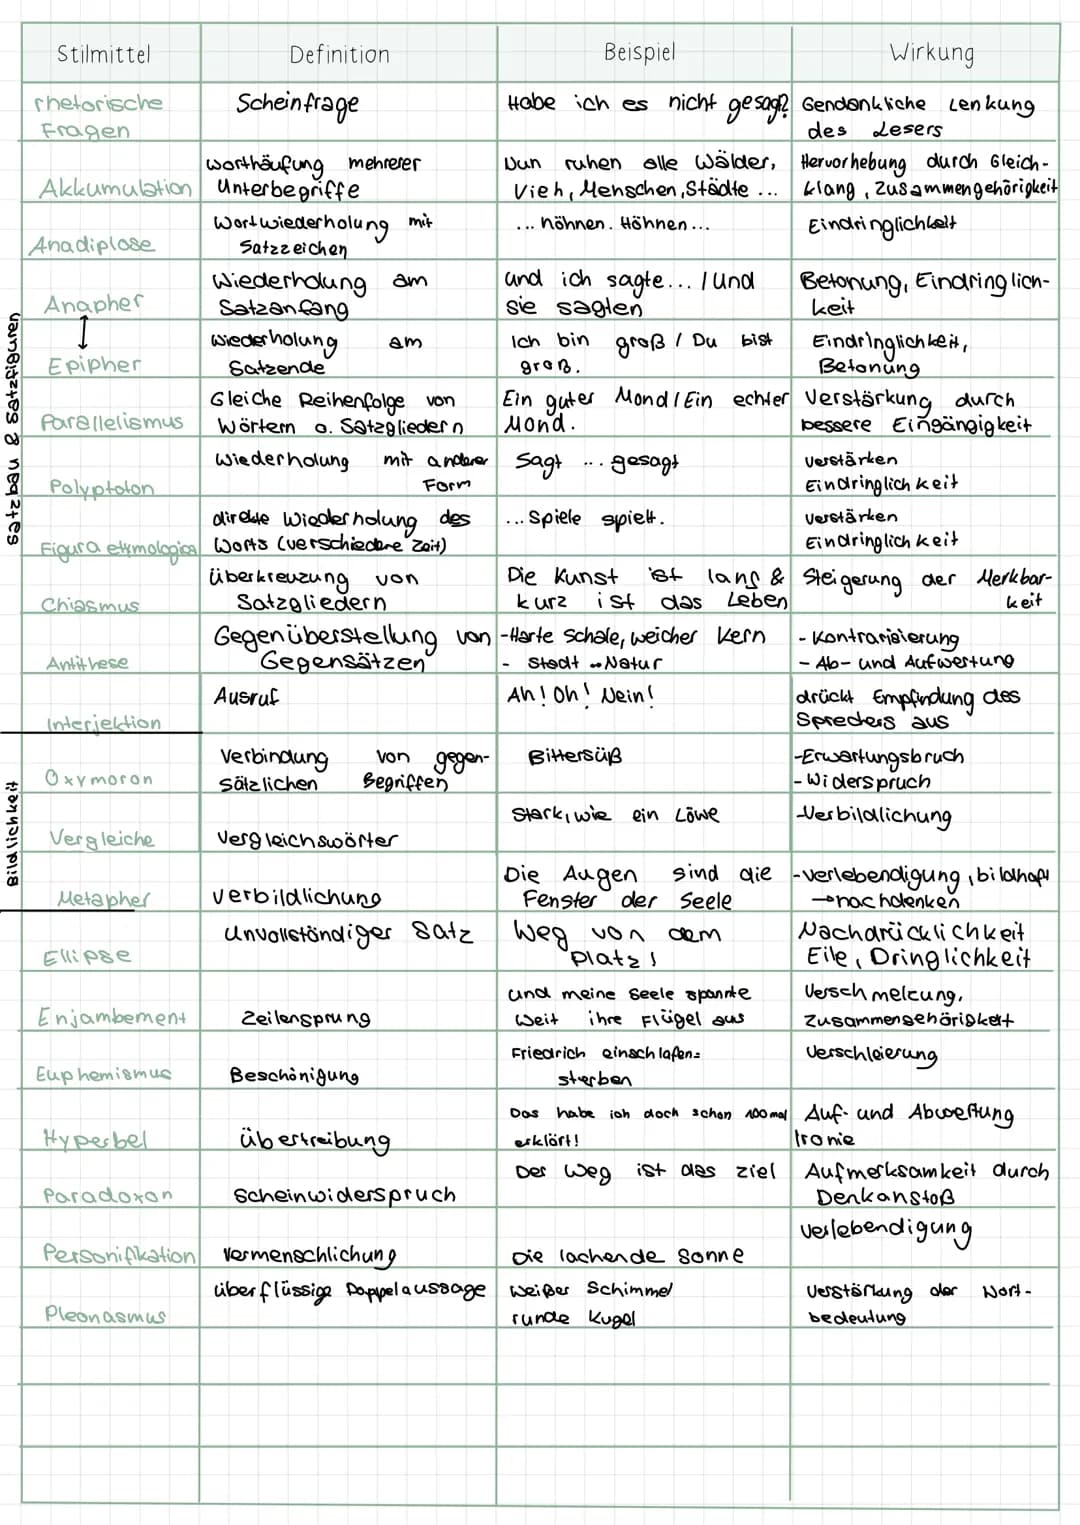 Stilmittel Definition Beispiel Wirkung
rhetorische Scheinfrage Habe ich es nicht gesagt? Gendankliche Lenkung
Fragen des Lesers
worthäufung mehrerer Nun ruhen alle Wälder, Hervorhebung durch Gleich-
Akkumulation Unterbegriffe Vieh, Menschen, Städte ... klang, Zusammengehörigkeit
Wortwiederholung mit ... höhnen. Höhnen ... Eindringlichkeit
Anadiplose Satzzeichen
Wiederholung am und ich sagte... / Und Betonung, Eindringlich-
Anapher Satzanfang sie sagten keit
↕
wiederholung am Ich bin groß / Du bist Eindringlichkeit,
Epipher Satzende groß. Betonung
Gleiche Reihenfolge von Ein guter Mond / Ein echter Verstärkung durch
Parallelismus Wörtern o. Satzgliedern Mond. bessere Eingängigkeit
Wiederholung mit anderer Sagt ... gesagt verstärken
Polyptoton Form Eindringlichkeit
direkte Wiederholung des ... Spiele spielt. verstärken
Figura etymologica Worts (verschiedene Zeit) Eindringlichkeit
Überkreuzung von Die Kunst ist lang & Steigerung der Merkbar-
Chiasmus Satzgliedern kurz ist das Leben keit
Gegenüberstellung von -Harte Schale, weicher Kern - Kontrarisierung
Antithese Gegensätzen - Stadt ↔ Natur - Ab- und Aufwertung
Ausruf Ah! Oh! Nein! drückt Empfindung des
Interjektion Sprechers aus
Satzbau & Satzfiguren
Verbindung von gegen- Bittersüß -Erwartungsbruch
Oxymoron sätzlichen Begriffen -Widerspruch
Stark, wie ein Löwe -Verbildlichung
Vergleiche Vergleichswörter
Die Augen sind die -verlebendigung, bildhaft
Metapher verbildlichung Fenster der Seele →nachdenken
Bildlichkeit
Unvollständiger Satz Weg von dem Nachdrücklichkeit
Ellipse Platz! Eile, Dringlichkeit
und meine Seele spannte Verschmelzung,
Enjambement Zeilensprung Weit ihre Flügel aus Zusammengehörigkeit
Friedrich einschlafen= Verschleierung
Euphemismus Beschönigung sterben
Das habe ich doch schon 100mal Auf- und Abwertung
Hyperbel übertreibung erklärt! Ironie
Der Weg ist das Ziel Aufmerksamkeit durch
Paradoxon Scheinwiderspruch Denkanstoß
verlebendigung
Personifikation vermenschlichung Die lachende Sonne
überflüssige Doppelaussage Weißer Schimmel Verstärkung der Wort-
Pleonasmus runde Kugel bedeutung